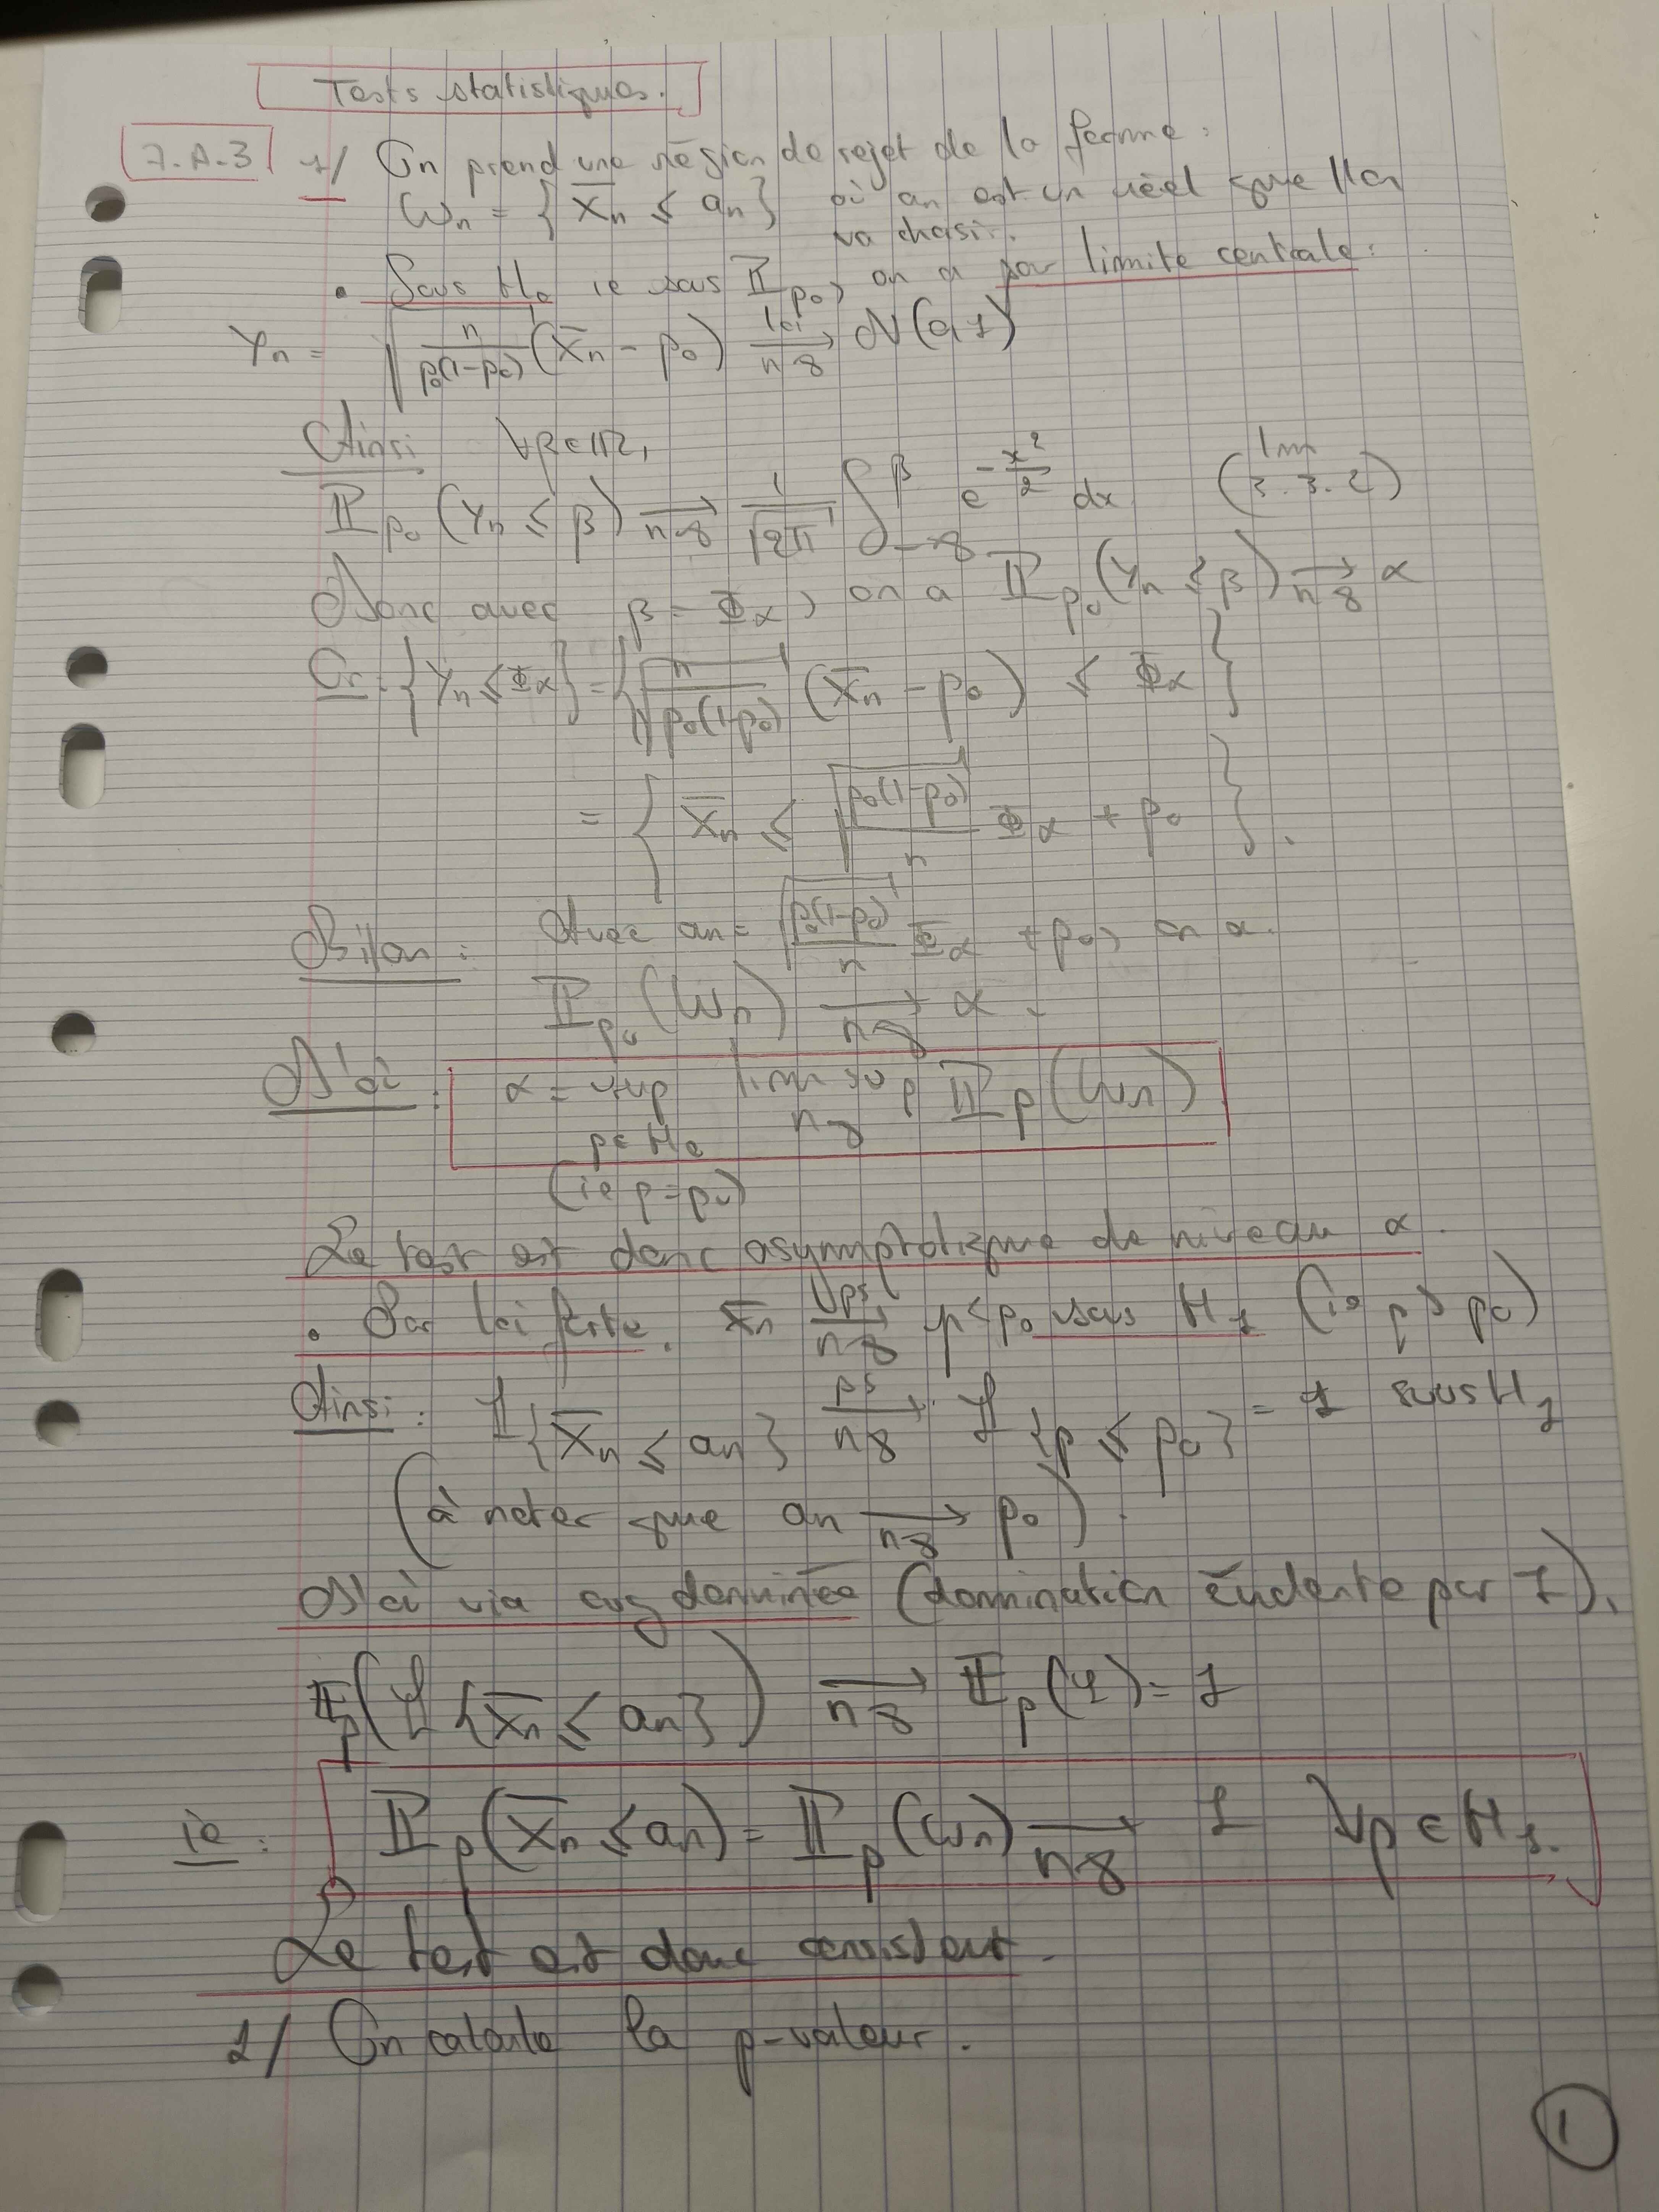 Tests statistiques.
7.A.3 1/ On prend une région de rejet de la forme :
Wn = { X̄n ≤ an } où an est un réel que l'on
va choisir.
• Sous H0 ie sous ℙp0, on a par limite centrale :
Yn = √(n/(p0(1-p0))) (X̄n - p0) →(loi, n→∞) N(0,1)
Ainsi ∀β∈ℝ,
ℙp0 (Yn ≤ β) →(n→∞) 1/√(2π) ∫_{-∞}^{β} e^{-x²/2} dx (lim 3.3.2)
Donc avec β = Φα, on a ℙp0(Yn ≤ β) →(n→∞) α
Or {Yn ≤ Φα} = { √(n/(p0(1-p0))) (X̄n - p0) ≤ Φα }
= { X̄n ≤ √(p0(1-p0)/n) Φα + p0 }.
Bilan : Avec an = √(p0(1-p0)/n) Φα + p0, on a.
ℙp0 (Wn) →(n→∞) α.
D'où : α = sup_{p∈H0} lim sup_{n→∞} ℙp(Wn)
(ie p=p0)
Le test est donc asymptotique de niveau α.
• Par loi forte. X̄n →(ps, n→∞) p<p0 sous H1 (ie p < p0)
Ainsi : 𝟙{X̄n ≤ an} →(ps, n→∞) 𝟙{p ≤ p0} = 1 sous H1
(à noter que an →(n→∞) p0).
D'où via cvg dominée (domination évidente par 1),
𝔼p(𝟙{X̄n ≤ an}) →(n→∞) 𝔼p(1) = 1
ie : ℙp(X̄n ≤ an) = ℙp(Wn) →(n→∞) 1 ∀p∈H1.
Le test est donc consistant.
2/ On calcule la p-valeur.
1